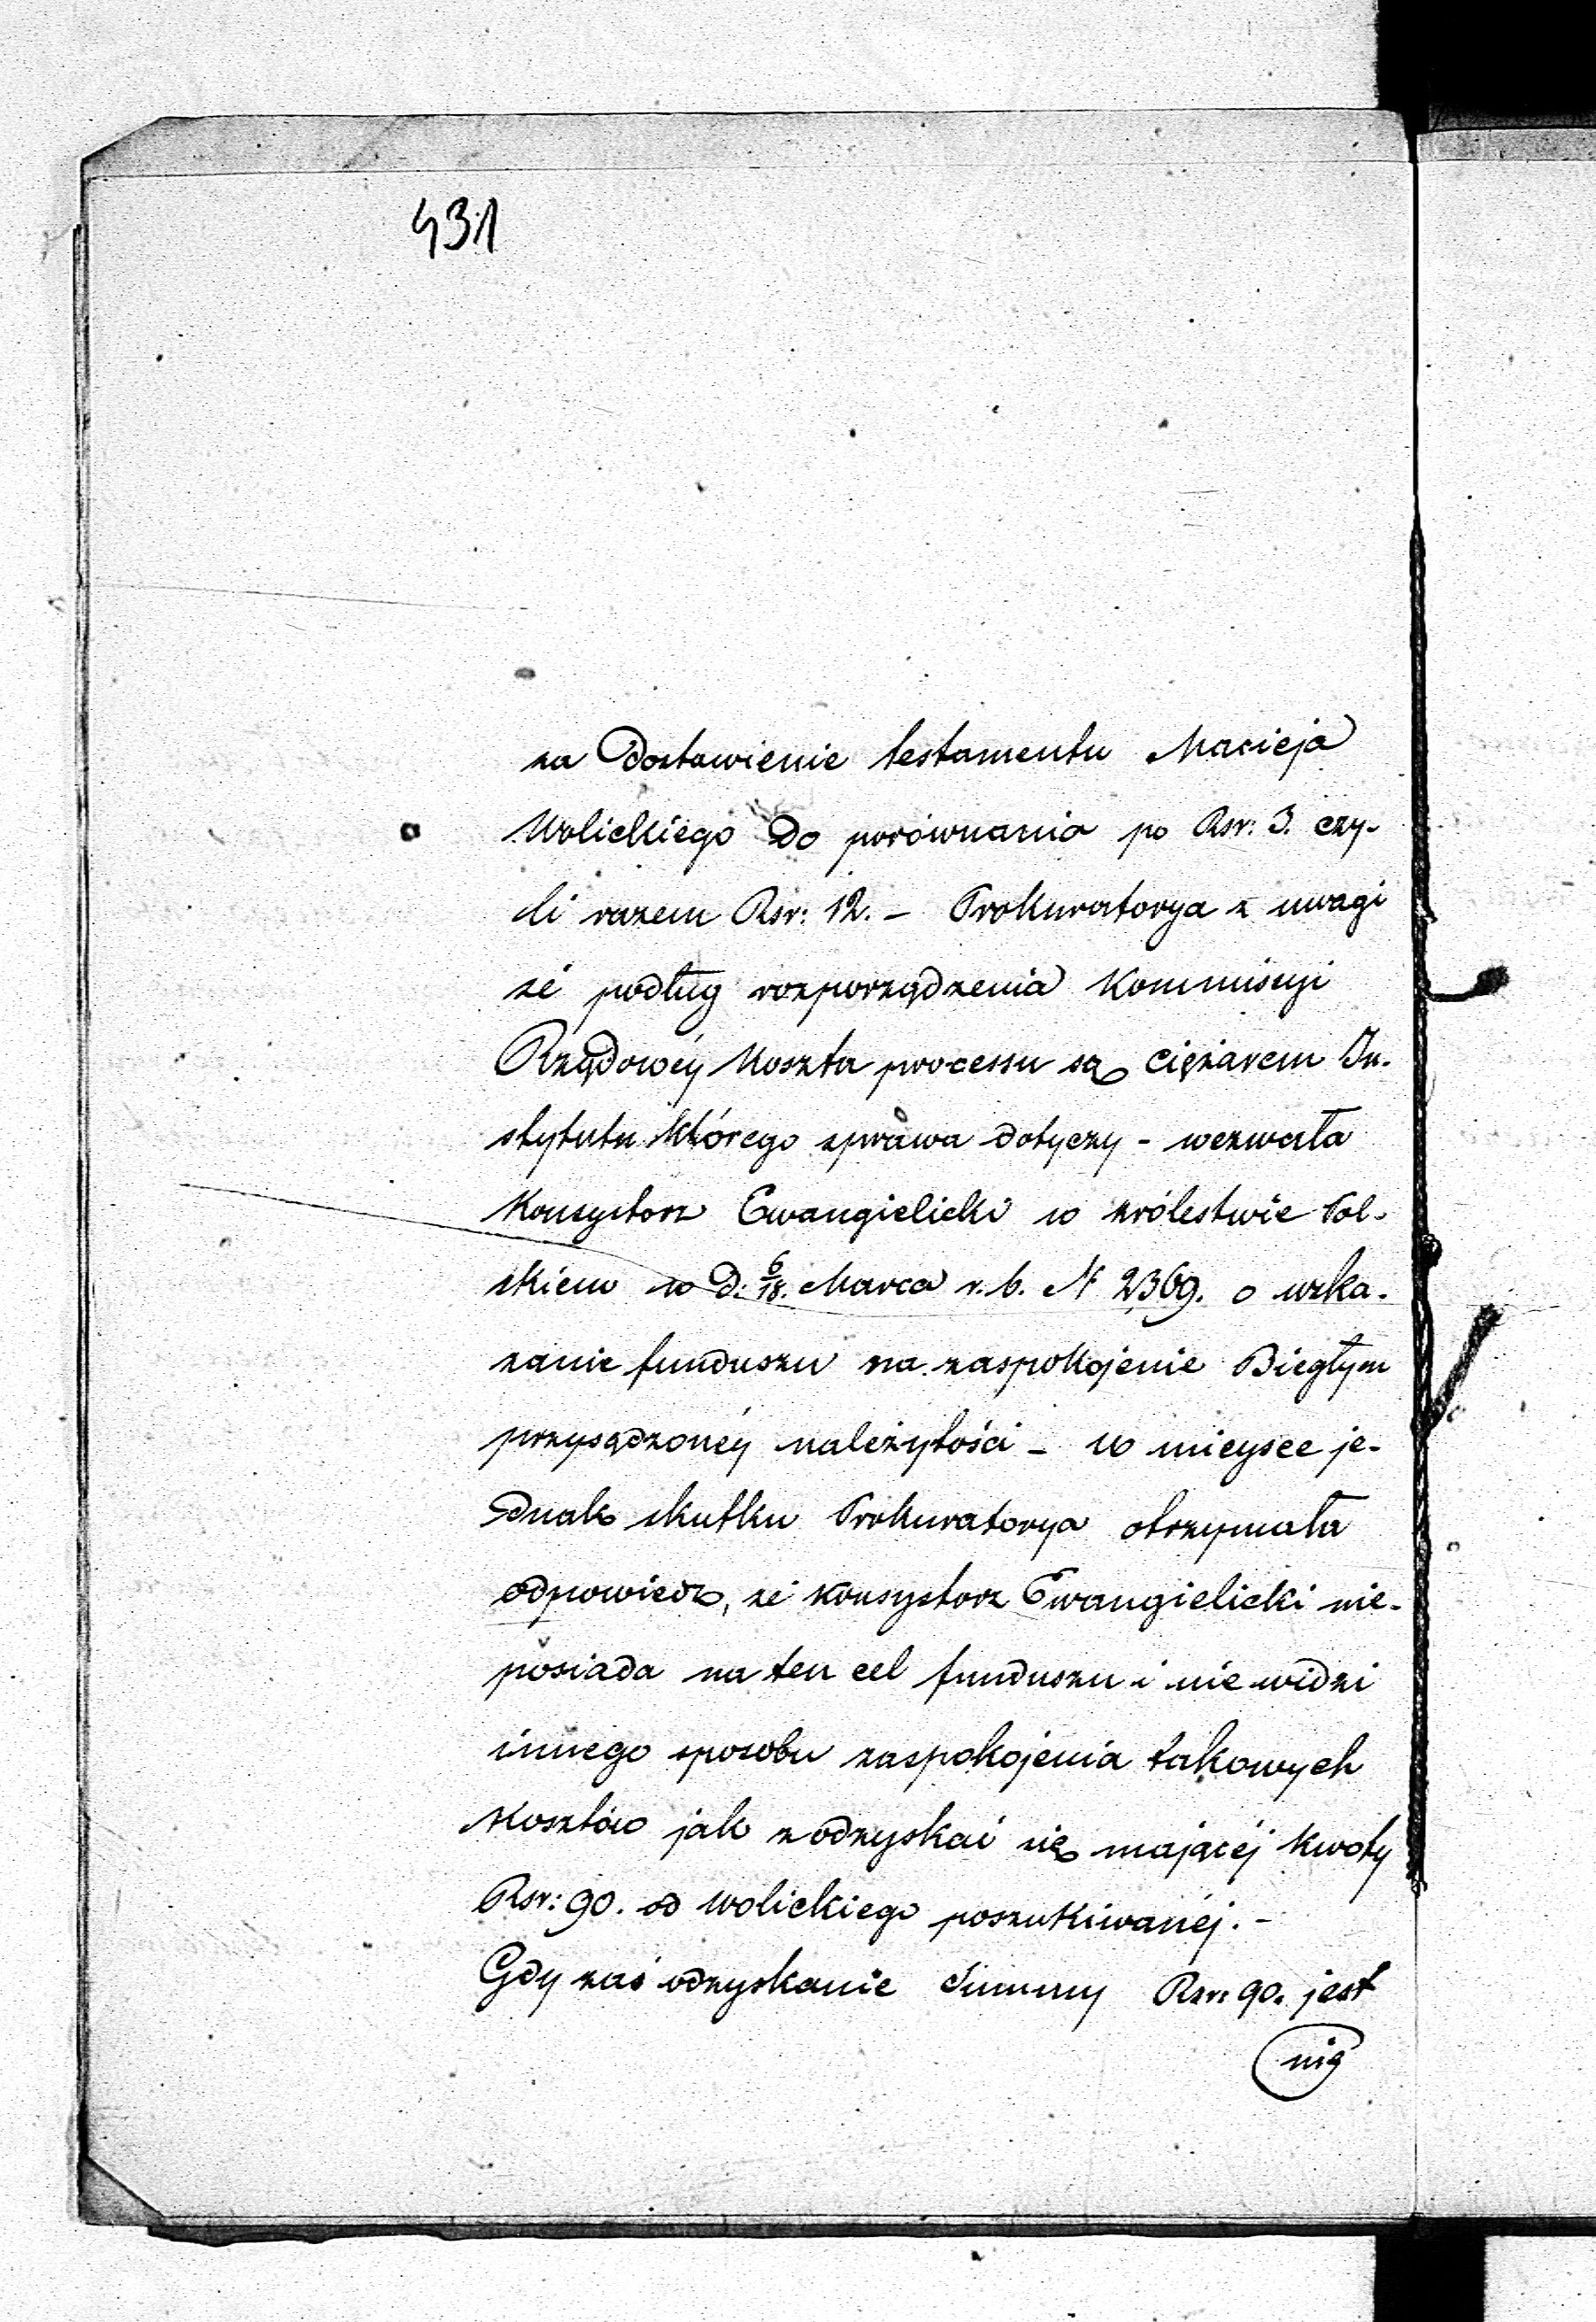 431
za Dostawienie testamentu Macieja
Wolickiego do porównania po Rsr: 3. czy-
li razem Rsr: 12. – Prokuratorya z uwagi
że podług rozporządzenia Kommissyi
Rządowéy koszta processu są ciężarem In-
stytutu którego sprawa dotyczy – wezwała
Konsystorz Ewangielicki w Królestwie Pol-
skiem w d: 6/18. Marca r. b. N 2369. o wska-
zanie funduszu na zaspokojenie Biegłym
przysądzonéy należytości – w mieysce je-
dnak skutku Prokuratorya otrzymała
odpowiedz, że Konsystorz Ewangielicki nie-
posiada na ten cel funduszu i nie widzi
innego sposobu zaspokojenia takowych
kosztów jak z odzyskać się mającéj kwoty
Rsr: 90. od Wolickiego poszukiwanéj. –
Gdy zaś odzyskanie Summy Rsr: 90. jest